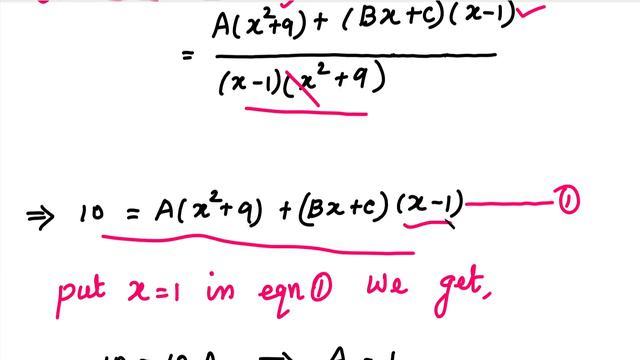 = A(x²+9) + (Bx+C)(x-1) ✓
(x-1)(x²+9)
⇒ 10 = A(x²+9) + (Bx+C)(x-1) ①
put x=1 in eqn ① we get,
10 = 10A ⇒ A = 1